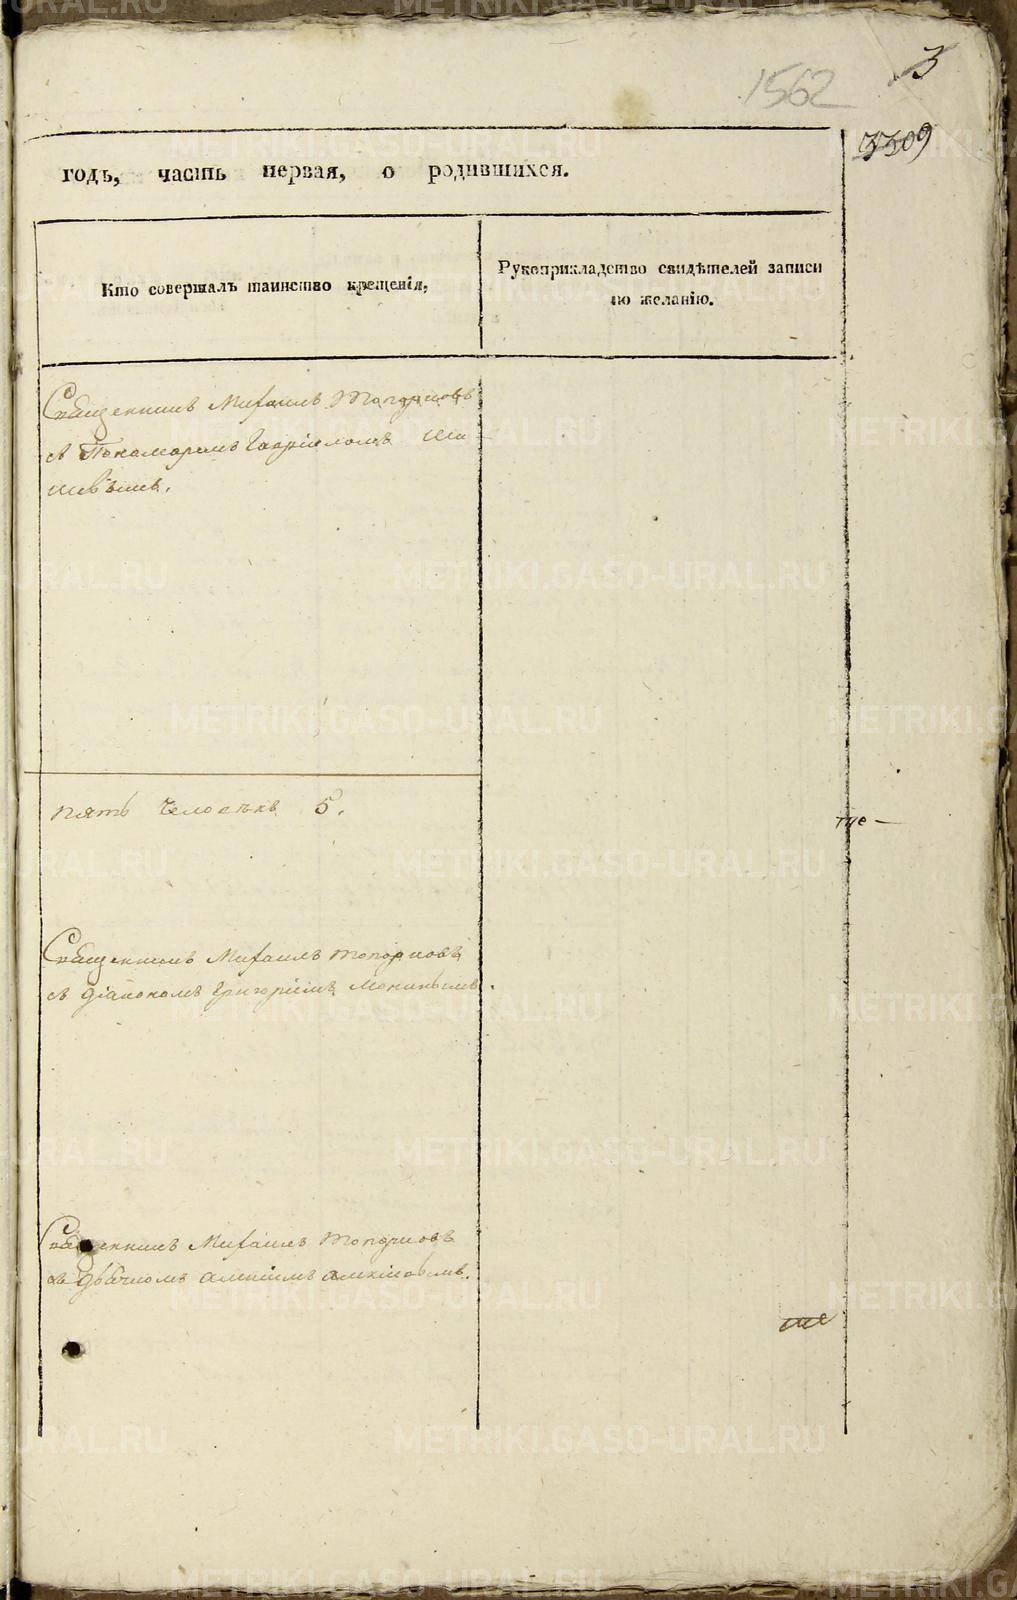 3
1562
3309
годъ, часть первая, о родившихся.
Кто совершалъ таинство крещенія,
Рукоприкладство свидѣтелей записи
по желанію.
Священникъ Михаилъ Топорковъ
съ Пономаремъ Гавріиломъ
пять Человѣкъ 5.
Священникъ Михаилъ Топорковъ
съ діакономъ Григоріемъ
Священникъ Михаилъ Топорковъ
съ дьячкомъ Алексіемъ Алексіовымъ.
METRIKI.GASO-URAL.RU